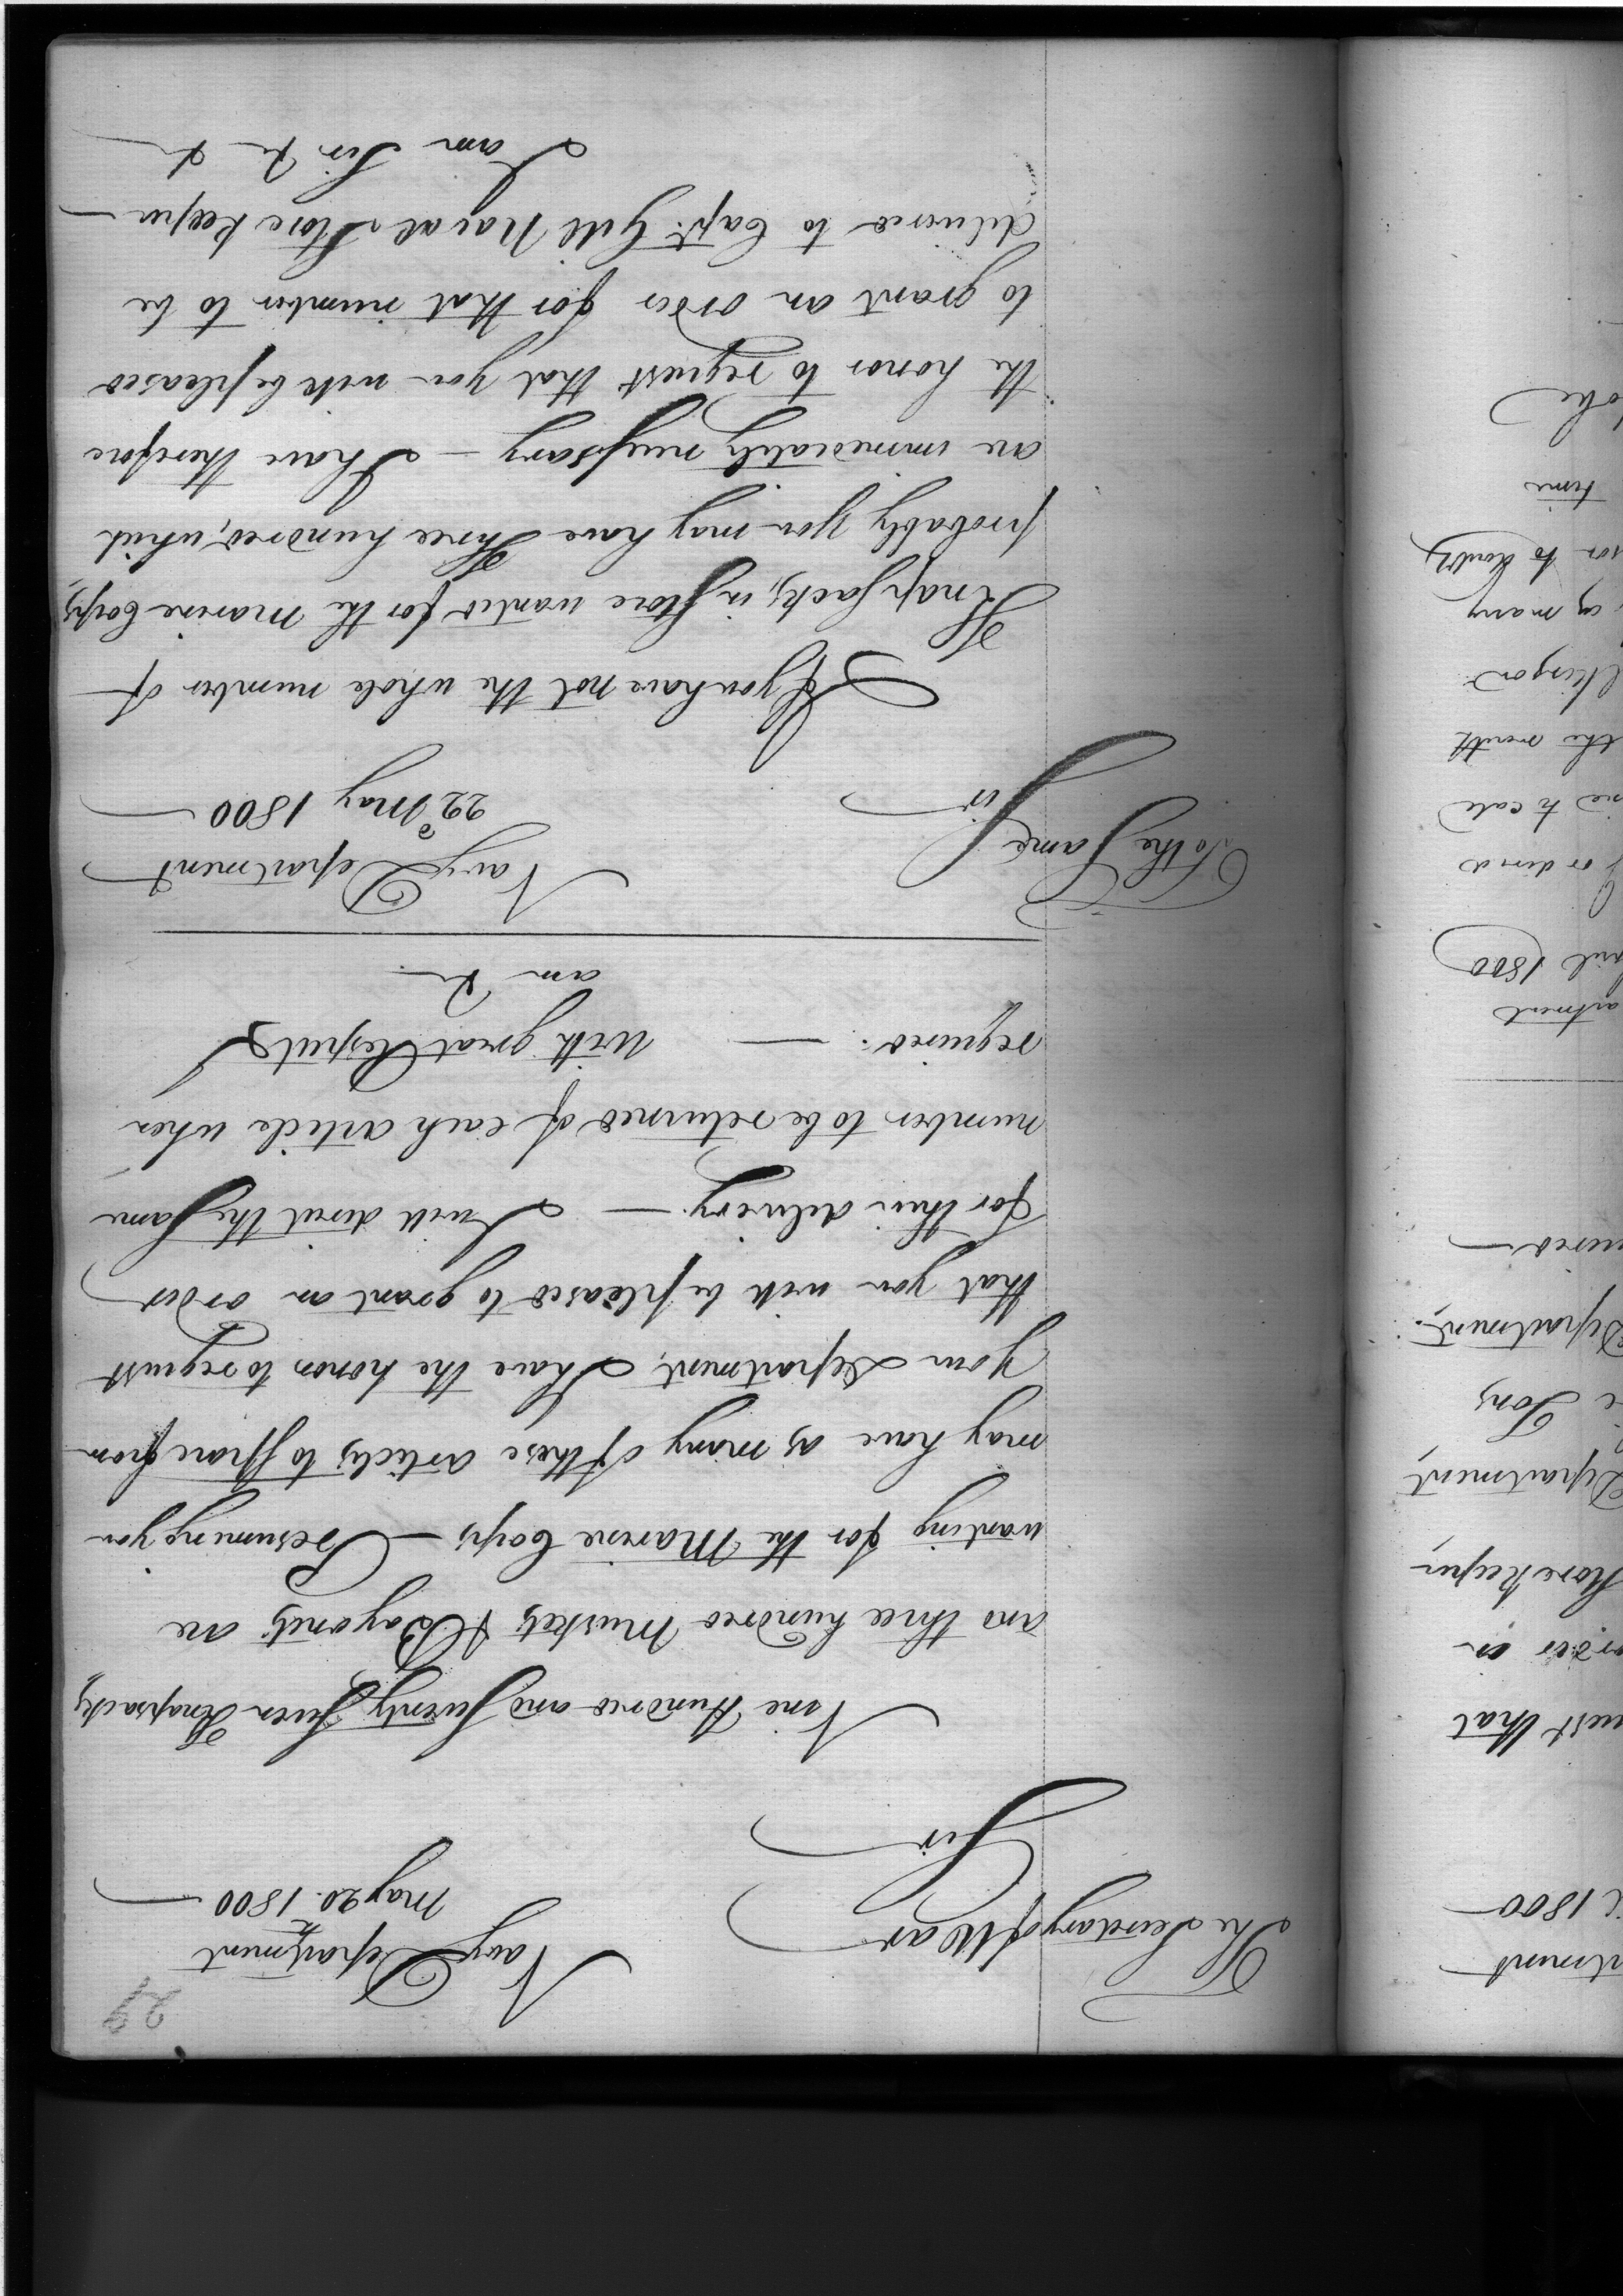 29
Navy Department
May 20th 1800
The Secretary of War
Sir
Nine Hundred and Seventy Seven Knapsacks,
and three hundred Muskets & Bayonets are
wanting for the Marine Corps — Presuming you
may have as many of these articles to spare from
your Department, I have the honor to request
that you will be pleased to grant an order
for their delivery. — I will direct the same
number to be returned of each article when
required. — With great Respect I
am &c
Navy Department
22d May 1800
To the Same
Sir
If you have not the whole number of
Knapsacks, in Store wanted for the Marine Corps,
probably you may have Three hundred, which
are immediately necessary — I have therefore
the honor to request that you will be pleased
to grant an order for that number to be
delivered to Capt. Gill Naval Store Keeper —
I am Sir &c &c
1800
uest that
Store Keeper
Department,
Tons
Department.
1800
the month
as many
time